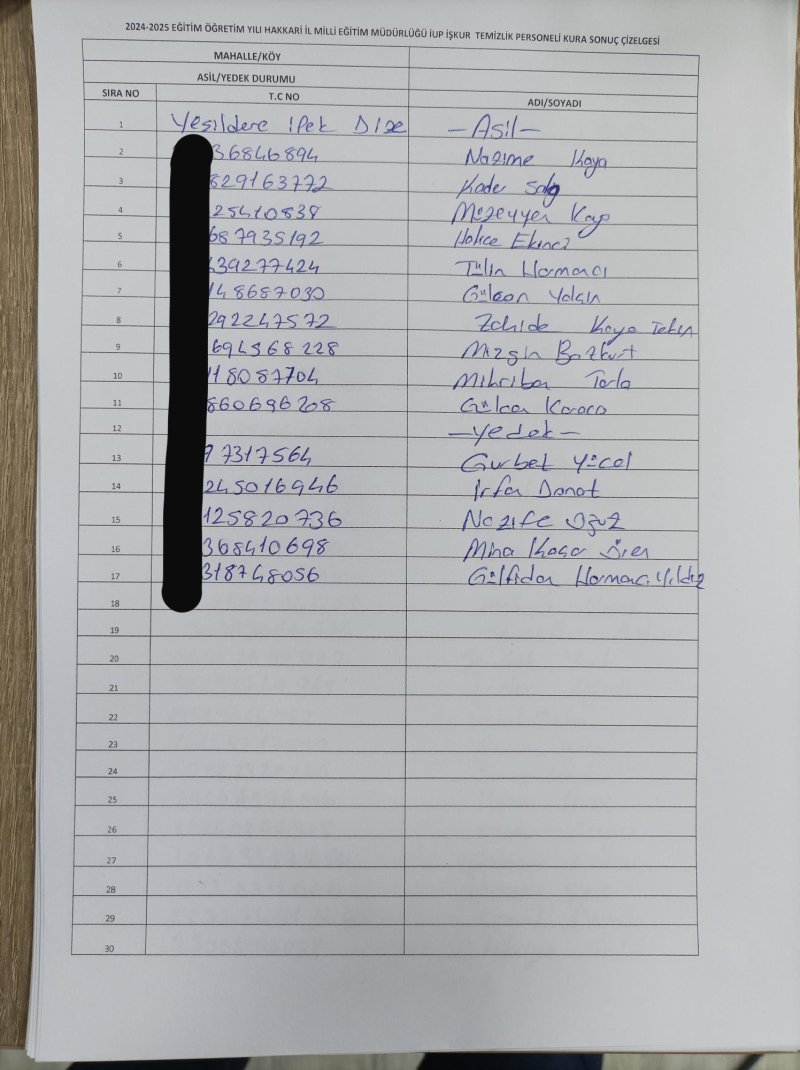 2024-2025 EĞİTİM ÖĞRETİM YILI HAKKARİ İL MİLLİ EĞİTİM MÜDÜRLÜĞÜ İUP İŞKUR TEMİZLİK PERSONELİ KURA SONUÇ ÇİZELGESİ
MAHALLE/KÖY
ASİL/YEDEK DURUMU
SIRA NO T.C NO ADI/SOYADI
1 Yeşildere ipek Dize -Asil-
2 36846894 Nazime Kaya
3 829163772 Kader
4 25410838 Müzeyyen Kaya
5 687935192 Hatice Ekinci
6 439277424 Tülin Harmancı
7 148687030 Gülcan Yalçın
8 292247572 Zahide Kaya Tekin
9 694568228 Mizgin Bozkurt
10 118087704 Mihriban Tarla
11 860696208 Gülcan Karaca
12 -yedek-
13 77317564 Gurbet Yücel
14 245016946 İrfan Donat
15 125820736 Nazife Oğuz
16 368410698 Mina
17 318748056 Gülfidan Harmancı Yıldız
18
19
20
21
22
23
24
25
26
27
28
29
30